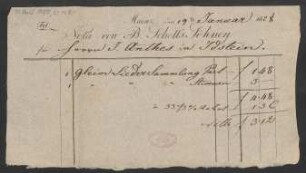 Mainz, den 19 Januar 1828.
Nota von B. Schott's Söhnen
für Herrn J. Anthes in Idstein.
1 Gleim Lieder Sammlung Part. f 1.48
1 " " " Stimmen 3.—
f 4.48
à 33⅓ % Rabat 1.36
netto f 3.12